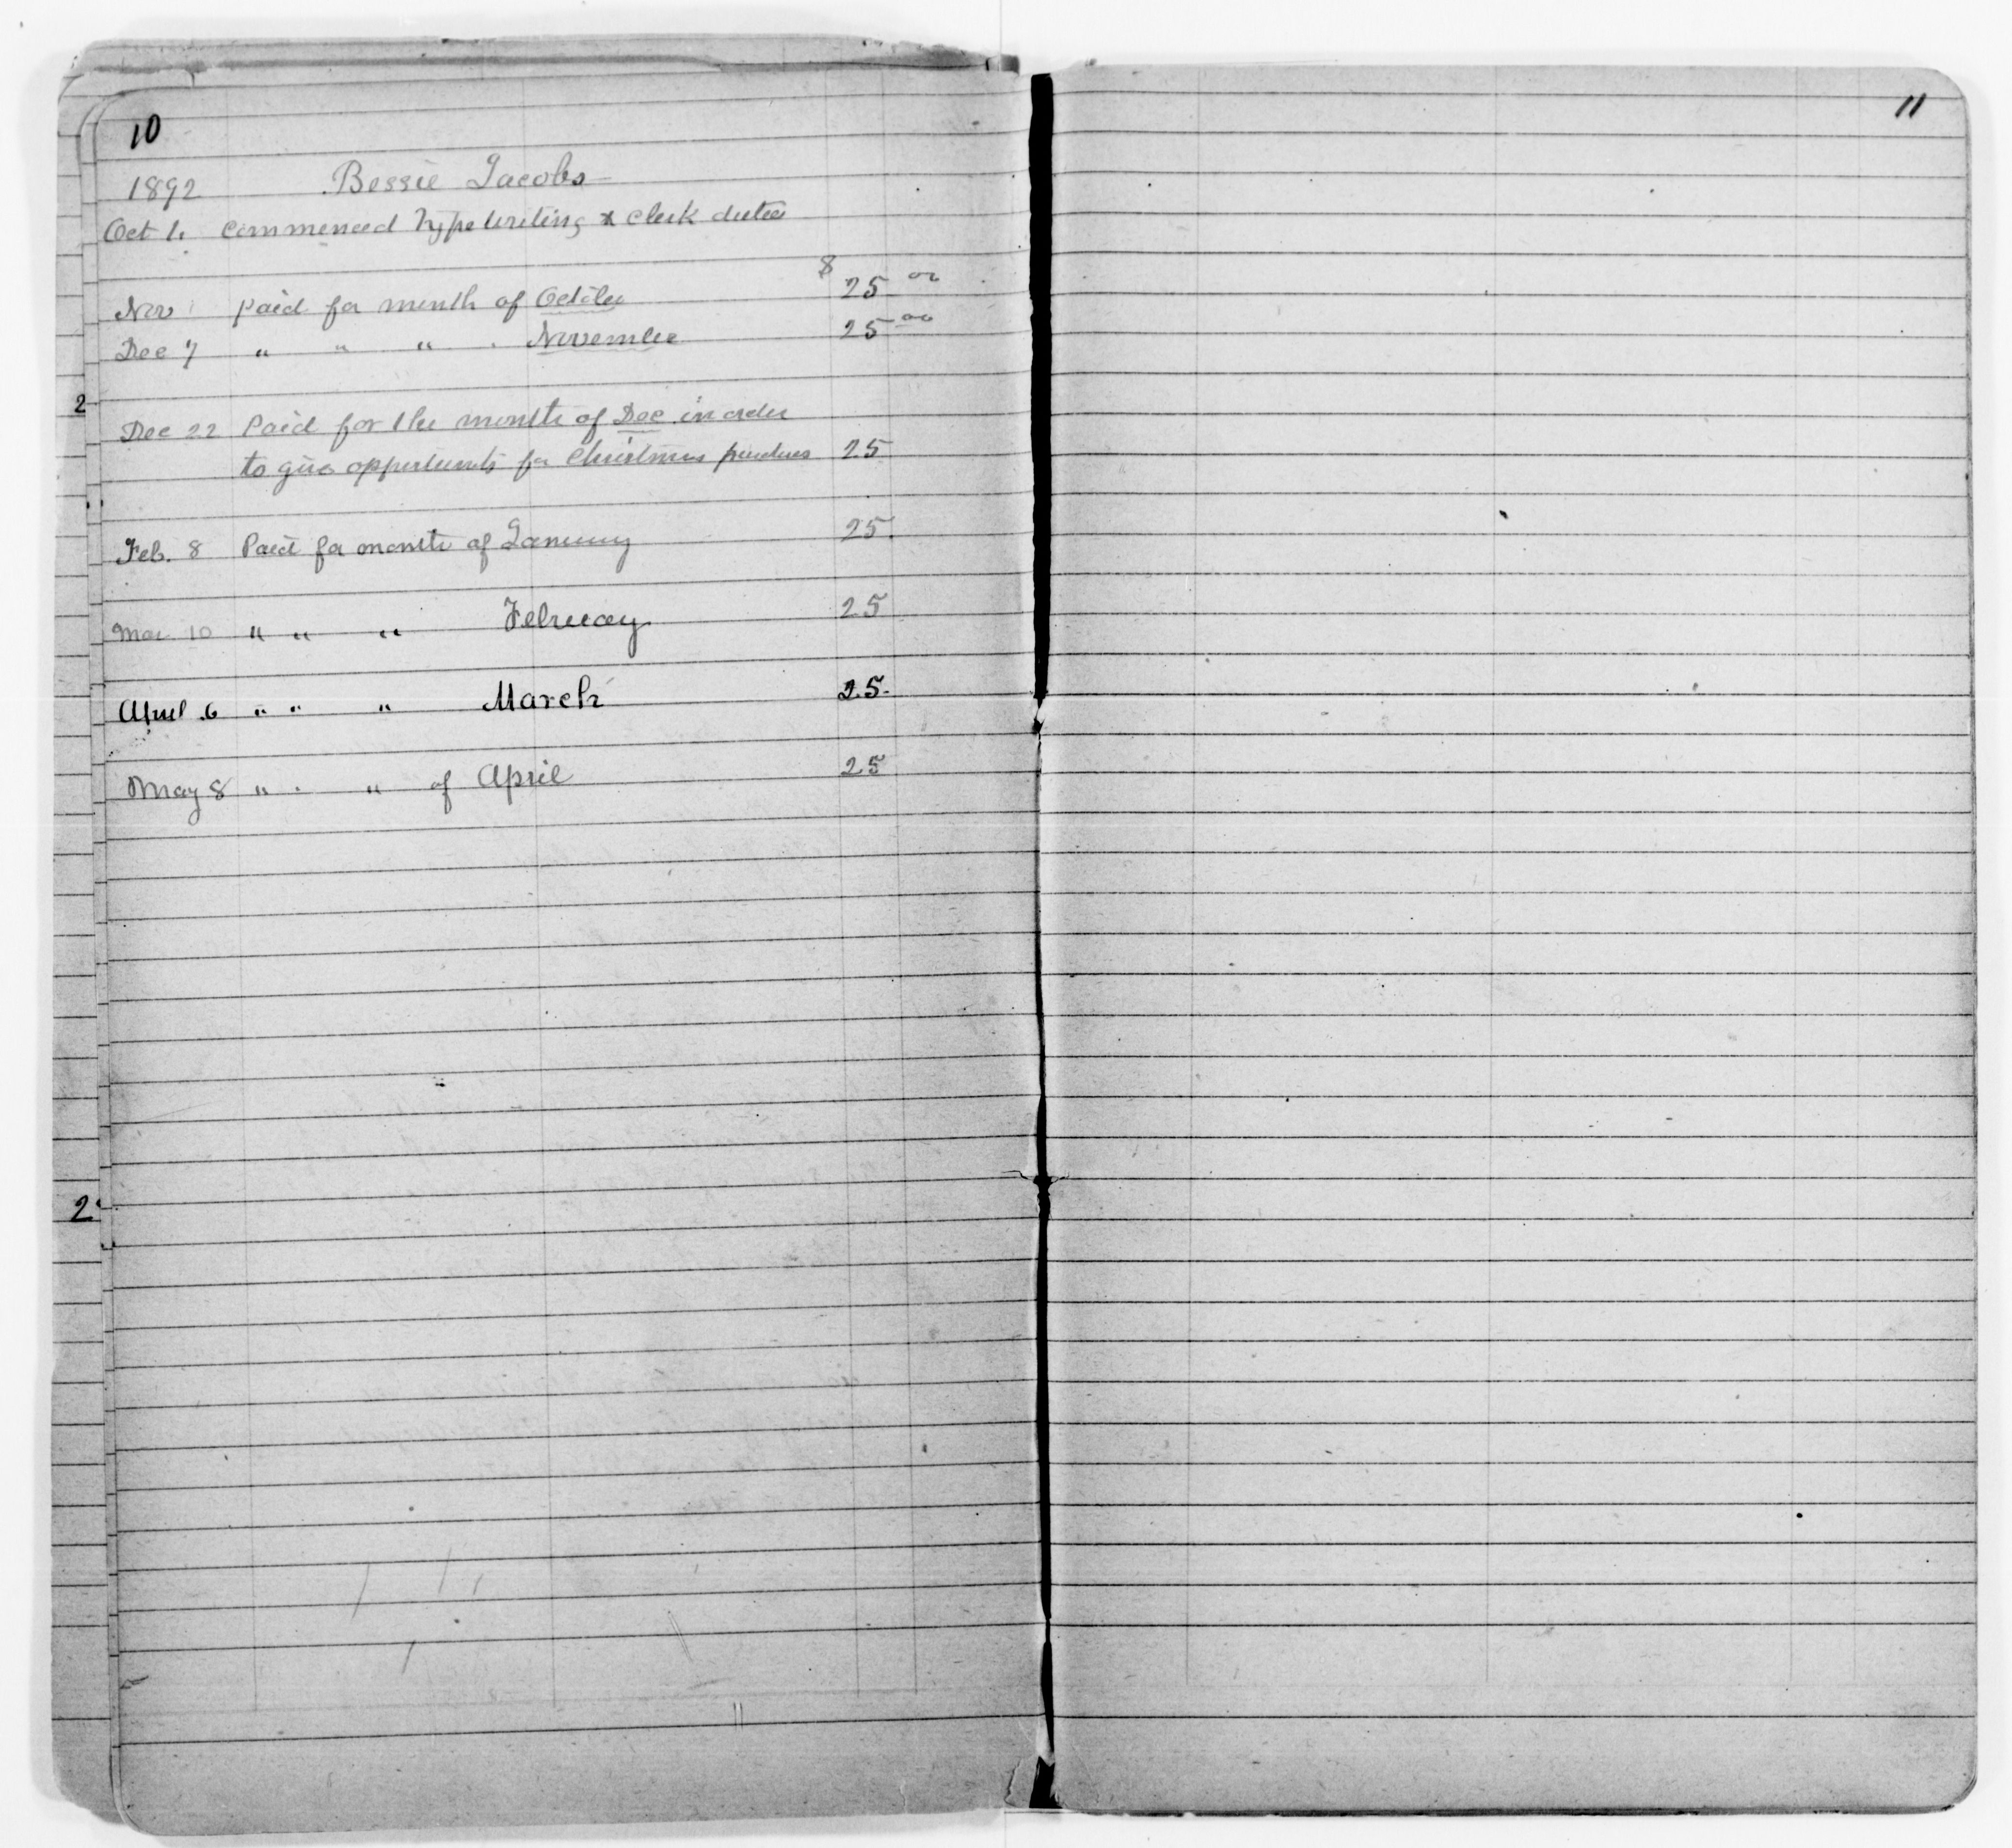 10
1892 Bessie Jacobs
Oct 1. Commenced Typewriting & Clerk duties
Nov 1 paid for month of October $ 25 00
Dec 7 " " " " November 25 00
2
Dec 22 Paid for the month of Dec in order
to give opportunity for Christmas purchases 25
Feb. 8 Paid for month of January 25.
Mar 10 " " " February 25
April 6 " " " March 25.
May 8 " " " of April 25
2
11